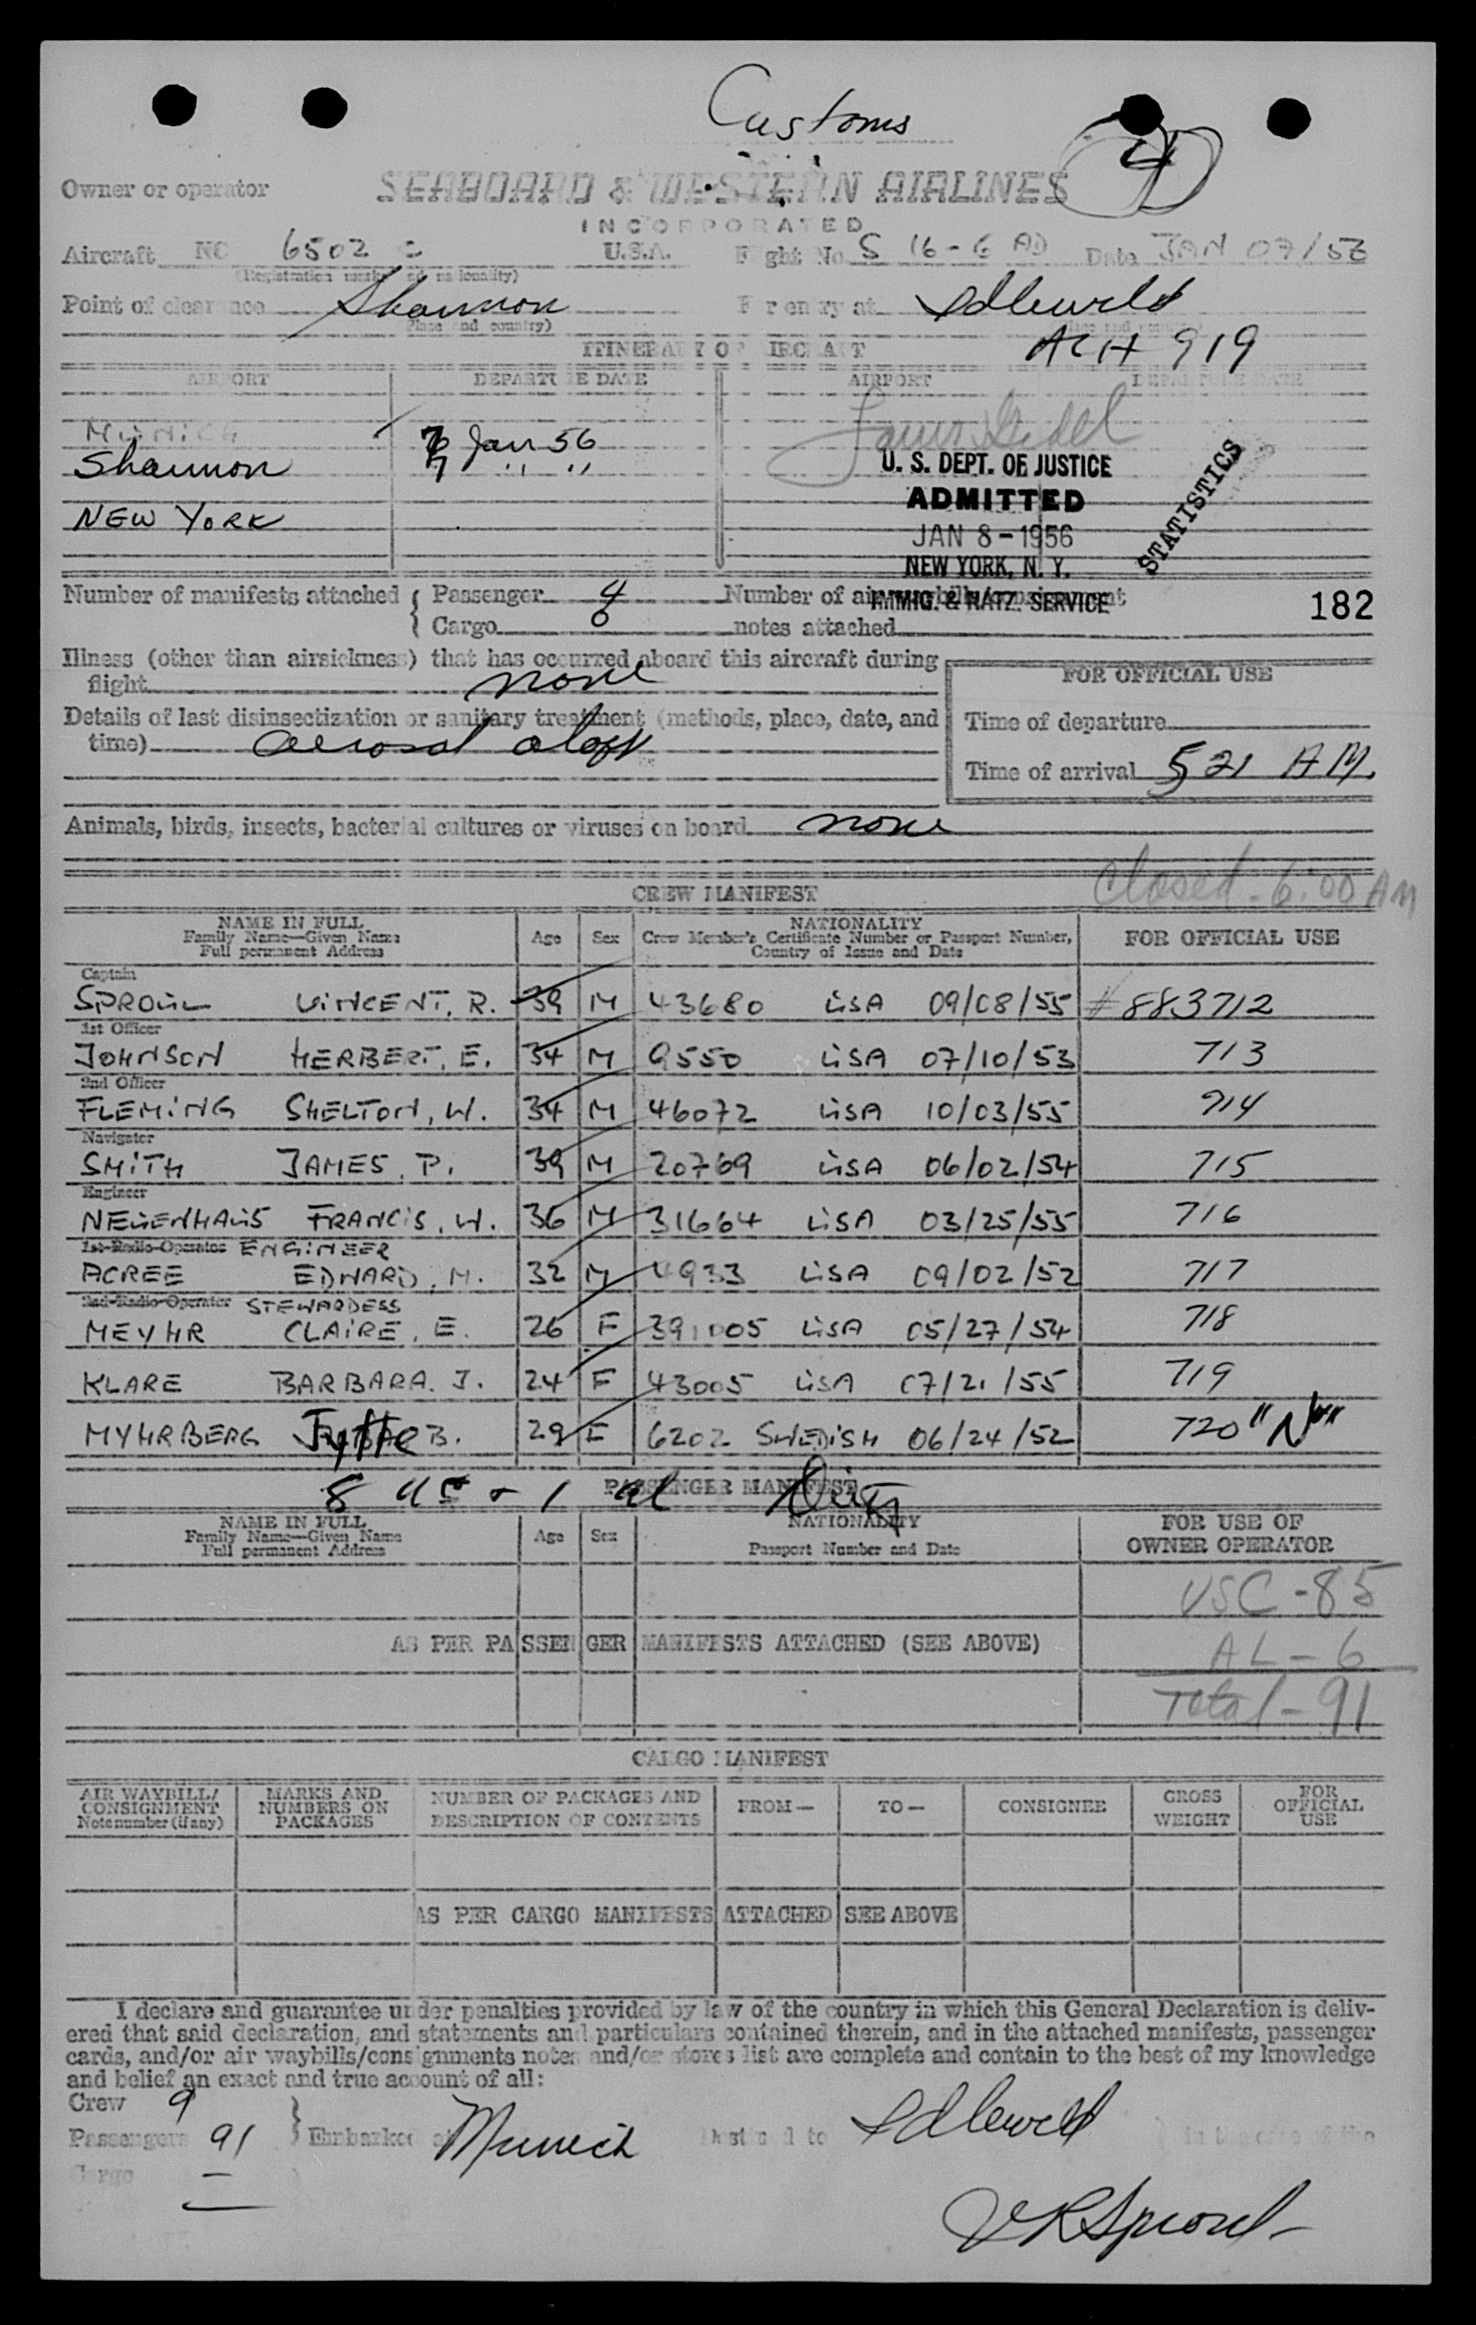 Customs
4
Owner or operator SEABOARD & WESTERN AIRLINES
INCORPORATED
Aircraft NC 6502 C U.S.A. Flight No. S 16-6 AD Date JAN 07/56
(Registration marks and nationality)
Point of clearance Shannon For entry at Idlewild
(Place and country) (Place and country)
ITINERARY OF AIRCRAFT ACH 919
AIRPORT DEPARTURE DATE AIRPORT DEPARTURE DATE
MUNICH 7 Jan 56
Shannon 7 " "
U. S. DEPT. OF JUSTICE
ADMITTED
STATISTICS
NEW YORK
JAN 8 - 1956
NEW YORK, N. Y.
IMMIG. & NATZ. SERVICE
182
Number of manifests attached { Passenger 4 Number of air waybills/consignment
Cargo 0 notes attached
Illness (other than airsickness) that has occurred aboard this aircraft during
flight none
FOR OFFICIAL USE
Details of last disinsectization or sanitary treatment (methods, place, date, and
time) aerosol aloft
Time of departure
Time of arrival 521 AM.
Animals, birds, insects, bacterial cultures or viruses on board none
Closed - 6:00 AM
CREW MANIFEST
NAME IN FULL
Family Name—Given Name
Full permanent Address
Age Sex
NATIONALITY
Crew Member's Certificate Number or Passport Number,
Country of Issue and Date
FOR OFFICIAL USE
Captain
SPROUL VINCENT, R. 39 M 43680 USA 09/08/55 #883712
1st Officer
JOHNSON HERBERT, E. 34 M 9550 USA 07/10/53 713
2nd Officer
FLEMING SHELTON, W. 34 M 46072 USA 10/03/55 914
Navigator
SMITH JAMES, P. 39 M 20769 USA 06/02/54 715
Engineer
NEUENHAUS FRANCIS, W. 36 M 31664 USA 03/25/55 716
1st Radio Operator ENGINEER
ACREE EDWARD, M. 32 M 4933 USA 09/02/52 717
2nd Radio Operator STEWARDESS
MEYHR CLAIRE, E. 26 F 391005 USA 05/27/54 718
KLARE BARBARA. J. 24 F 43005 USA 07/21/55 719
MYHRBERG Jytte B. 29 F 6202 SWEDISH 06/24/52 720 "N"
8 USC - 1 al
PASSENGER MANIFEST
NAME IN FULL
Family Name—Given Name
Full permanent Address
Age Sex
NATIONALITY
Passport Number and Date
FOR USE OF
OWNER OPERATOR
USC - 85
AS PER PASSENGER MANIFESTS ATTACHED (SEE ABOVE)
AL - 6
Total - 91
CARGO MANIFEST
AIR WAYBILL/
CONSIGNMENT
Note number (if any)
MARKS AND
NUMBERS ON
PACKAGES
NUMBER OF PACKAGES AND
DESCRIPTION OF CONTENTS
FROM— TO— CONSIGNEE
GROSS
WEIGHT
FOR
OFFICIAL
USE
AS PER CARGO MANIFESTS ATTACHED SEE ABOVE
I declare and guarantee under penalties provided by law of the country in which this General Declaration is deliv-
ered that said declaration, and statements and particulars contained therein, and in the attached manifests, passenger
cards, and/or air waybills/consignments notes and/or stores list are complete and contain to the best of my knowledge
and belief an exact and true account of all:
Crew 9
Passengers 91 } Embarked at Munich Destined to Idlewild in the care of the
Cargo —
V R Sproul